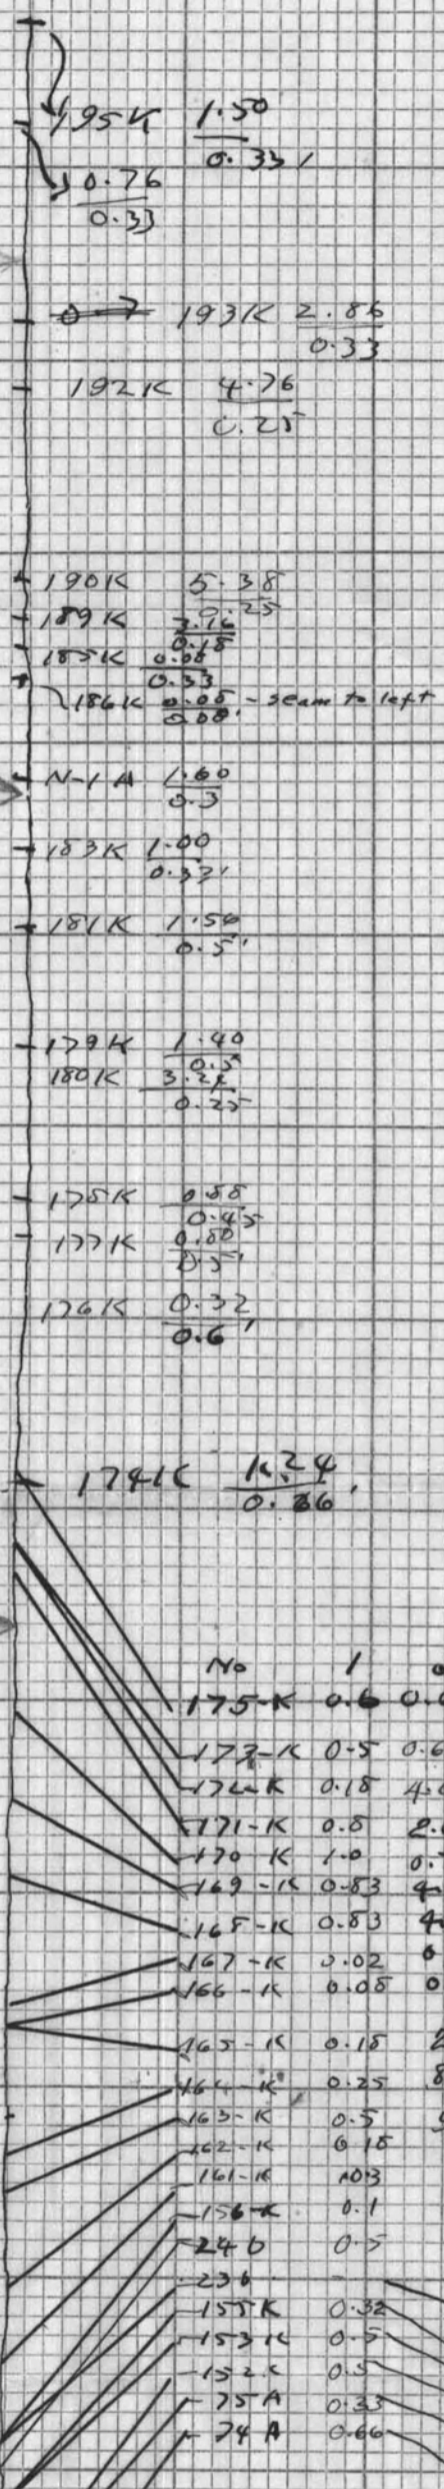 195K 1.50
0.33'
0.76
0.33
193K 2.86
0.33
192K 4.76
0.25
190K 5.38
0.25
189K
0.18
185K 0.08
0.33
186K 0.08 - seam to left
0.08'
N-1A 1.60
0.3
183K 1.00
0.33'
181K 1.56
0.5'
179K 1.40
0.5'
180K 3.24
0.25
178K 0.88
0.45
177K 0.80
0.5'
176K 0.32
0.6'
174K 1.24
No 1
175-K 0.6
173-K 0.5 0.6
172-K 0.18
171-K 0.8
170-K 1.0
169-K 0.83
168-K 0.83
167-K 0.02
166-K 0.08
165-K 0.18
164-K 0.25
163-K 0.5
162-K 0.18
161-K
156-K 0.1
24b 0.5
23b -
155K 0.32
153K 0.5
152K 0.5
75A 0.33
74A 0.66